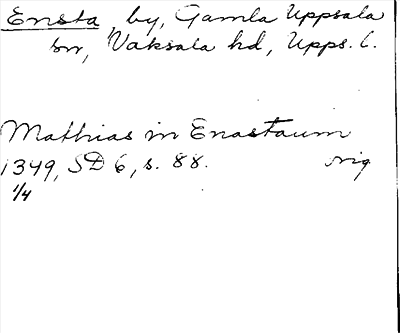 Ensta, by, Gamla Uppsala
sn, Vaksala hd, Upps. l.
Mathias in Enastaum
1349, SD 6, s. 88. orig
1/4